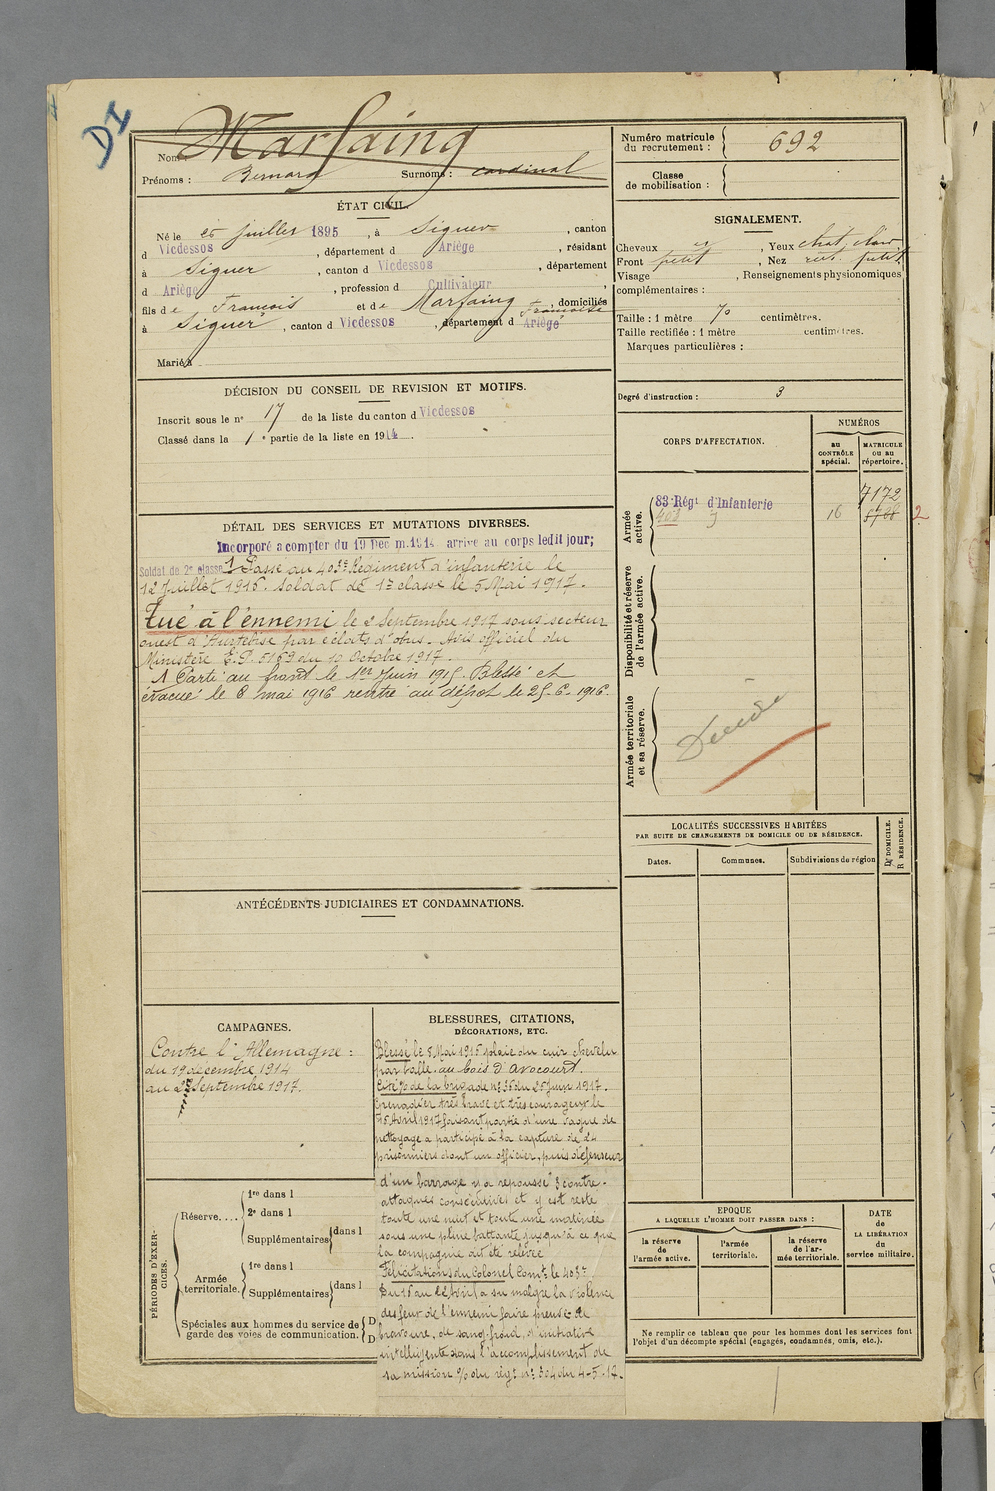 DI
Nom : Marfaing
Prénoms : Bernard Surnoms : cardinal
Numéro matricule du recrutement : 692
Classe de mobilisation :
ÉTAT CIVIL.
Né le juillet 1895, à Siguer, canton
d Vicdessos, département d Ariège, résidant
à Siguer, canton d Vicdessos, département
d Ariège, profession d Cultivateur,
fils de François et de Marfaing Françoise, domiciliés
à Siguer, canton d Vicdessos, département d Ariège
Marié à
SIGNALEMENT.
Cheveux , Yeux chat. clair
Front petit, Nez rect. petit
Visage , Renseignements physionomiques
complémentaires :
Taille : 1 mètre 70 centimètres.
Taille rectifiée : 1 mètre centimètres.
Marques particulières :
Degré d'instruction : 3
DÉCISION DU CONSEIL DE REVISION ET MOTIFS.
Inscrit sous le n° 17 de la liste du canton d Vicdessos
Classé dans la 1e partie de la liste en 1914.
CORPS D'AFFECTATION.
NUMÉROS
au CONTRÔLE spécial.
MATRICULE OU AU répertoire.
Armée active.
83e Régt d'Infanterie
403
16
7172
2
Disponibilité et réserve de l'armée active.
Armée territoriale et sa réserve.
Décédé
DÉTAIL DES SERVICES ET MUTATIONS DIVERSES.
Incorporé à compter du 19 Décem. 1914 arrivé au corps ledit jour;
Soldat de 2e classe 1 Passé au 403e Régiment d'infanterie le
12 Juillet 1916. Soldat de 1re classe le 5 Mai 1917.
Tué à l'ennemi le 2 Septembre 1917 sous secteur
ouest d'Hurtebise par éclats d'obus. Avis officiel du
Ministère E.P. 5169 du 10 Octobre 1917.
1 Parti au front le 1er Juin 1915. Blessé et
évacué le 8 mai 1916 rentré au dépôt le 25-6-1916.
LOCALITÉS SUCCESSIVES HABITÉES
PAR SUITE DE CHANGEMENTS DE DOMICILE OU DE RÉSIDENCE.
Dates.
Communes.
Subdivisions de région
D DOMICILE.
R RÉSIDENCE.
ANTÉCÉDENTS JUDICIAIRES ET CONDAMNATIONS.
CAMPAGNES.
Contre l'Allemagne :
du 19 décembre 1914
au 2 Septembre 1917.
BLESSURES, CITATIONS,
DÉCORATIONS, ETC.
Blessé le 8 Mai 1916 plaie du cuir chevelu
par balle au bois d'Avocourt.
Cité % de la brigade n° 35 du 25 Juin 1917.
Grenadier très brave et très courageux le
Avril 1917 faisant partie d'une vague de
nettoyage a participé à la capture de 24
prisonniers dont un officier, puis défenseur
d'un barrage y a repoussé 3 contre-
attaques consécutives et y est resté
toute une nuit et toute une matinée
sous une pluie battante jusqu'à ce que
la compagnie ait été relevée
Félicitations du Colonel Comt le 403e
Du 16 au 22 Avril a su malgré la violence
des feux de l'ennemi faire preuve de
bravoure, de sang-froid, d'initiative
intelligente dans l'accomplissement de
sa mission % du régt n° 304 du 4-5-17.
PÉRIODES D'EXERCICES.
Réserve....
1re dans l
2e dans l
Supplémentaires dans l
Armée territoriale.
1re dans l
Supplémentaires dans l
Spéciales aux hommes du service de garde des voies de communication.
D
D
EPOQUE
A LAQUELLE L'HOMME DOIT PASSER DANS :
la réserve de l'armée active.
l'armée territoriale.
la réserve de l'armée territoriale.
DATE de LA LIBÉRATION du service militaire.
Ne remplir ce tableau que pour les hommes dont les services font
l'objet d'un décompte spécial (engagés, condamnés, omis, etc.).